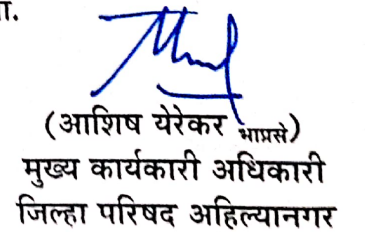 ा.
(आशिष येरेकर भाप्रसे)
मुख्य कार्यकारी अधिकारी
जिल्हा परिषद अहिल्यानगर